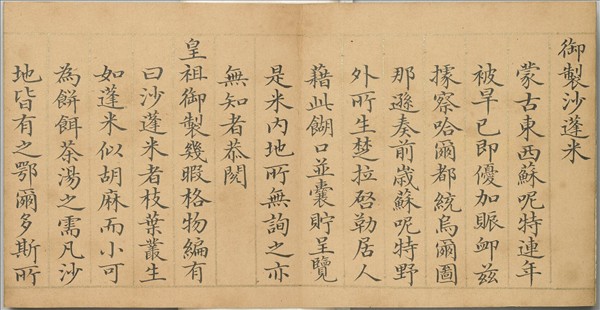 御製沙蓬米
蒙古東西蘇呢特連年
被旱已即優加賑卹茲
據察哈爾都統烏爾圖
那遜奏前歲蘇呢特野
外所生楚拉啓勒居人
藉此餬口並囊貯呈覽
是米內地所無詢之亦
無知者恭閱
皇祖御製幾暇格物編有
曰沙蓬米者枝葉叢生
如蓬米似胡麻而小可
為餅餌茶湯之需凡沙
地皆有之鄂爾多斯所